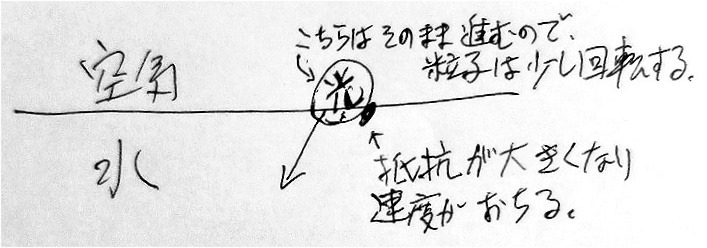 こちらはそのまま進むので、
粒子は少し回転する。
空気
光
水
抵抗が大きくなり
速度がおちる。